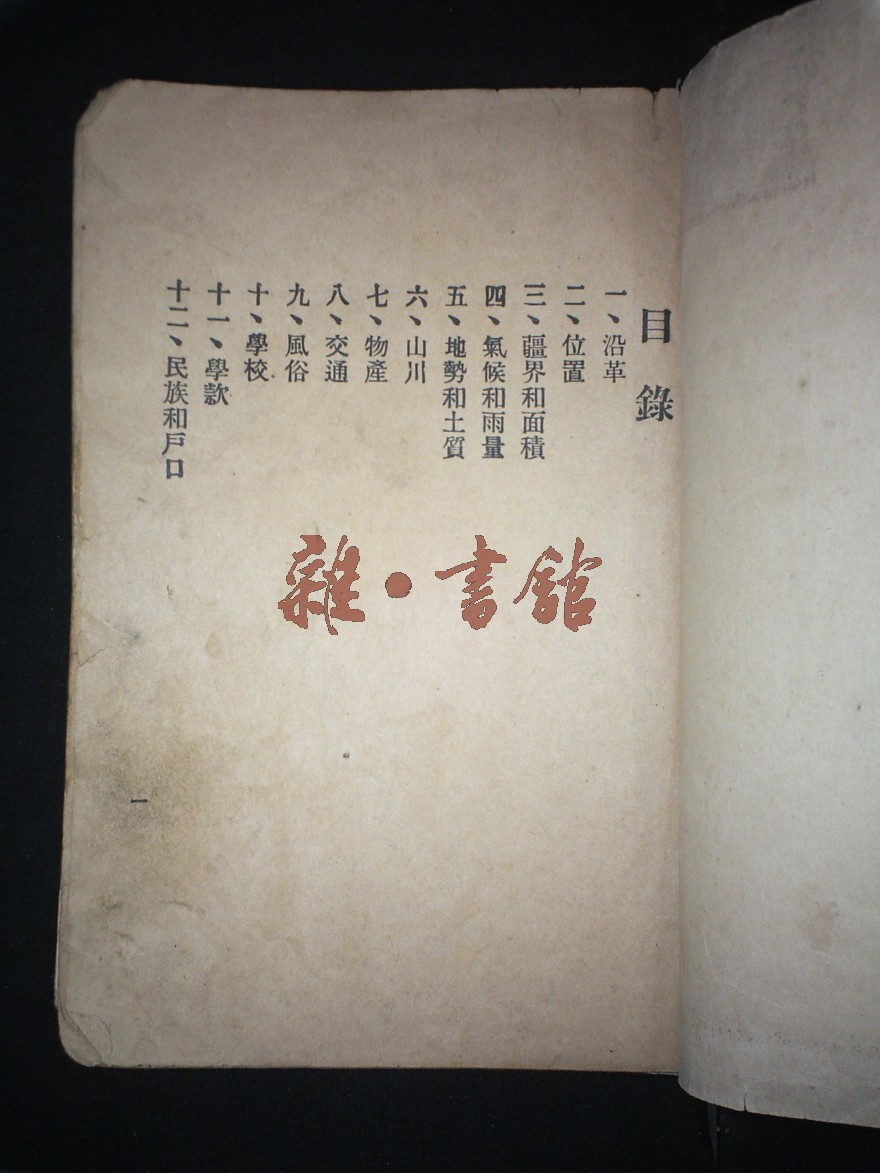 目錄
一、沿革
二、位置
三、疆界和面積
四、氣候和雨量
五、地勢和土質
六、山川
七、物產
八、交通
九、風俗
十、學校
十一、學款
十二、民族和戶口
一
雜·書館